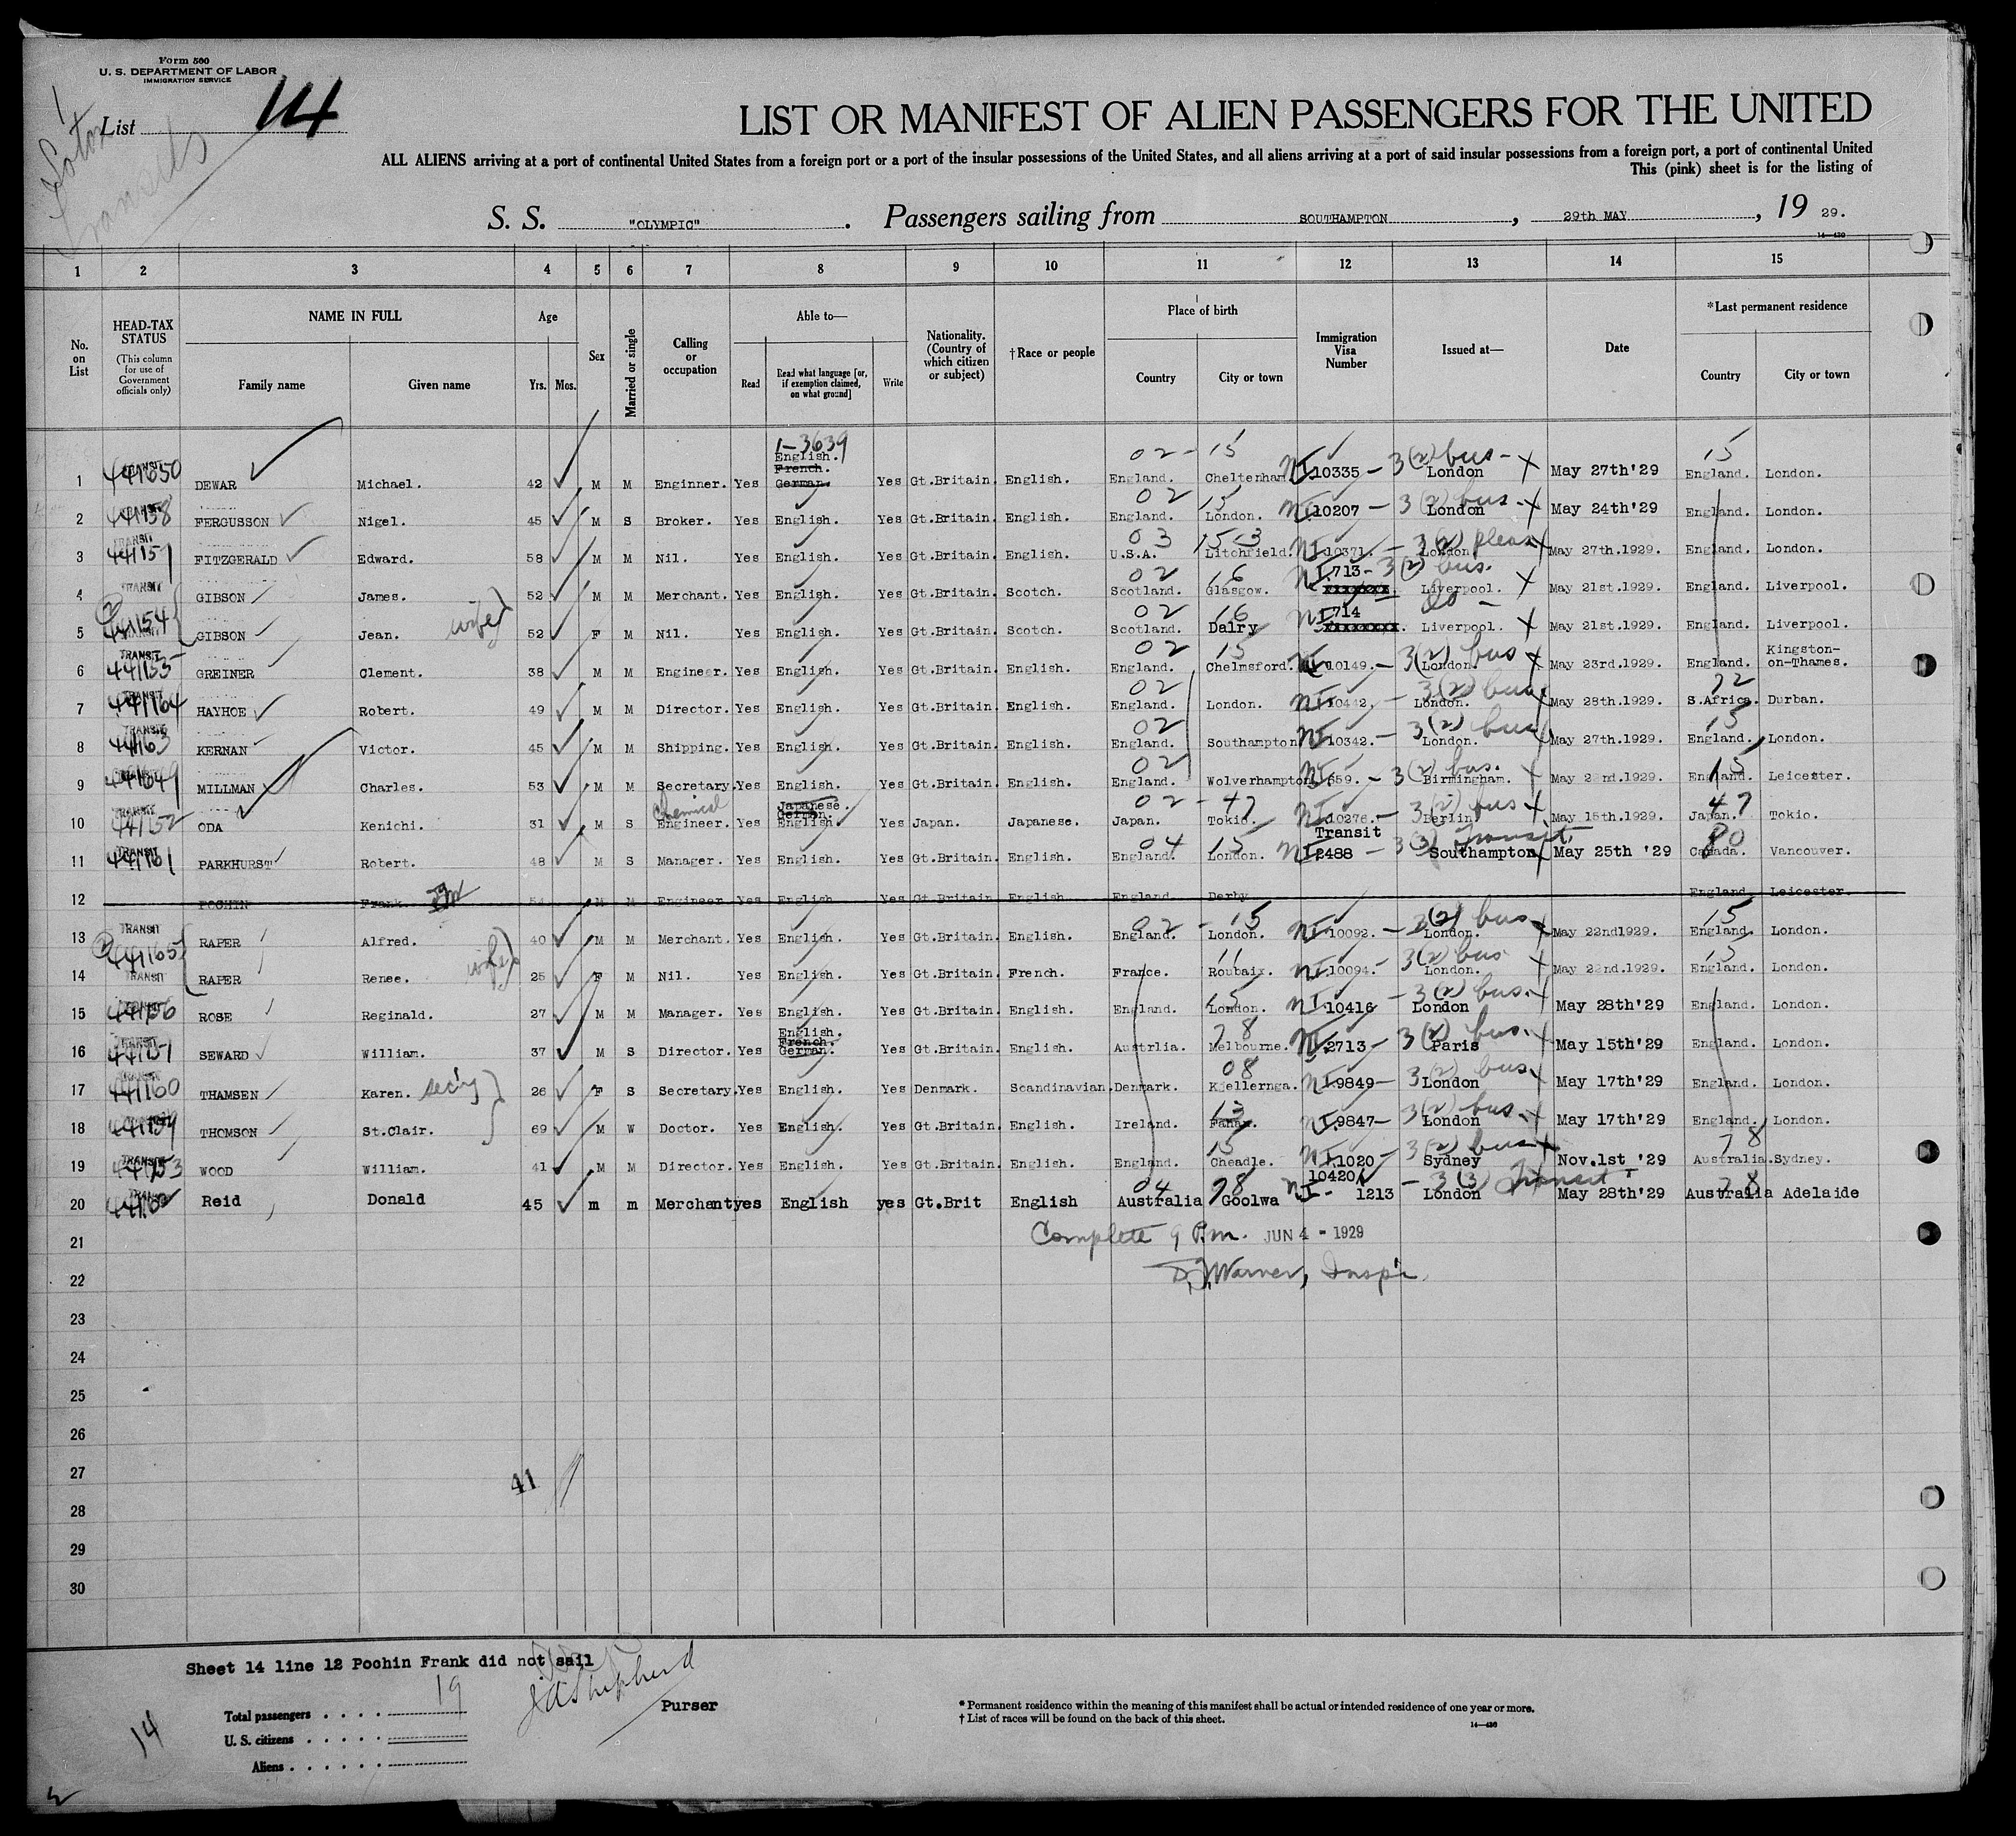 Form 500
U. S. DEPARTMENT OF LABOR
IMMIGRATION SERVICE
List 14
LIST OR MANIFEST OF ALIEN PASSENGERS FOR THE UNITED
ALL ALIENS arriving at a port of continental United States from a foreign port or a port of the insular possessions of the United States, and all aliens arriving at a port of said insular possessions from a foreign port, a port of continental United
This (pink) sheet is for the listing of
S. S. "OLYMPIC". Passengers sailing from SOUTHAMPTON, 29th MAY, 19 29.
14—430
1 2 3 4 5 6 7 8 9 10 11 12 13 14 15
No. on List
HEAD-TAX STATUS
(This column for use of Government officials only)
NAME IN FULL
Family name Given name
Age
Yrs. Mos.
Sex
Married or single
Calling or occupation
Able to—
Read
Read what language [or, if exemption claimed, on what ground]
Write
Nationality. (Country of which citizen or subject)
†Race or people
Place of birth
Country City or town
Immigration Visa Number
Issued at—
Date
*Last permanent residence
Country City or town
1-3639 02 - 15 15
English.
French.
1 TRANSIT DEWAR Michael. 42 M M Enginner. Yes German. Yes Gt.Britain. English. England. Cheltenham. NI 10335 — 3(2) bus - London May 27th'29 England. London.
02 15
2 FERGUSSON Nigel. 45 M S Broker. Yes English. Yes Gt.Britain. English. England. London. NI 10207 — 3(2) bus London May 24th'29 England. London.
03 15-3
3 TRANSIT FITZGERALD Edward. 58 M M Nil. Yes English. Yes Gt.Britain. English. U.S.A. Litchfield. NI 10371. — 3(2) pleas London May 27th.1929. England. London.
02 16 NI.713 - 3(2) bus.
4 TRANSIT GIBSON James. 52 M M Merchant. Yes English. Yes Gt.Britain. Scotch. Scotland. Glasgow. xxxxxxx Liverpool. May 21st.1929. England. Liverpool.
02 16 NI 714 do —
5 44154 GIBSON Jean. wife 52 F M Nil. Yes English. Yes Gt.Britain. Scotch. Scotland. Dalry xxxxxxxx. Liverpool. May 21st.1929. England. Liverpool.
02 15 Kingston-
6 TRANSIT 44155 GREINER Clement. 38 M M Engineer. Yes English. Yes Gt.Britain. English. England. Chelmsford. NI 10149. — 3(2) bus London. May 23rd.1929. England. on-Thames.
02 72
7 TRANSIT 44164 HAYHOE Robert. 49 M M Director. Yes English. Yes Gt.Britain. English. England. London. NI 10442. — 3(2) bus London. May 28th.1929. S.Africa. Durban.
02 15
8 TRANSIT 44163 KERNAN Victor. 45 M M Shipping. Yes English. Yes Gt.Britain. English. England. Southampton NI 10342. — 3(2) bus London. May 27th.1929. England. London.
02 15
9 MILLMAN Charles. 53 M M Secretary. Yes English. Yes Gt.Britain. English. England. Wolverhampton 659. — 3(2) bus. Birmingham. May 22nd.1929. England. Leicester.
Chemical Japanese. 02 - 47 47
German.
10 TRANSIT 44152 ODA Kenichi. 31 M S Engineer. Yes English. Yes Japan. Japanese. Japan. Tokio. NI 10276. — 3(2) bus Berlin May 15th.1929. Japan. Tokio.
04 15 Transit Transit 80
11 TRANSIT 44161 PARKHURST Robert. 48 M S Manager. Yes English. Yes Gt.Britain. English. England. London. NI 2488 — 3(3) Southampton May 25th '29 Canada. Vancouver.
12 POCHIN Frank 54 M M Engineer Yes English Yes Gt.Britain English England Derby England Leicester.
02 - 15 15
13 TRANSIT RAPER Alfred. 40 M M Merchant. Yes English. Yes Gt.Britain. English. England. London. NI 10092. — 3(2) bus London. May 22nd1929. England. London.
44165 11 15
14 TRANSIT RAPER Renee. wife 25 F M Nil. Yes English. Yes Gt.Britain. French. France. Roubaix. NI 10094. — 3(2) bus London. May 22nd.1929. England. London.
15
15 44156 ROSE Reginald. 27 M M Manager. Yes English. Yes Gt.Britain. English. England. London. NI 10416 — 3(2) bus. London May 28th'29 England. London.
English.
French. 78
16 SEWARD William. 37 M S Director. Yes German. Yes Gt.Britain. English. Austrlia. Melbourne. NI 2713 — 3(2) bus. Paris May 15th'29 England. London.
08
17 44160 THAMSEN Karen. sec'y 26 F S Secretary. Yes English. Yes Denmark. Scandinavian. Denmark. Kjellernga. NI 9849 — 3(2) bus. London May 17th'29 England. London.
13
18 44159 THOMSON St.Clair. 69 M W Doctor. Yes English. Yes Gt.Britain. English. Ireland. NI 9847 — 3(2) bus. London May 17th'29 England. London.
15 78
19 44153 WOOD William. 41 M M Director. Yes English. Yes Gt.Britain. English. England. Cheadle. NI 1020 — 3(2) bus Sydney Nov.1st '29 Australia. Sydney.
04 78 10420 78
20 44162 Reid Donald 45 m m Merchant yes English yes Gt.Brit English Australia Goolwa NI- 1213 — 3(3) Transit London May 28th'29 Australia Adelaide
21 Complete 9 P.m. JUN 4 - 1929
22 Warner, Insp'r.
23
24
25
26
27 41
28
29
30
Sheet 14 line 12 Pochin Frank did not sail
J A Shepherd
Purser
Total passengers . . . . 19
U. S. citizens . . . . .
Aliens . . . . . .
14
* Permanent residence within the meaning of this manifest shall be actual or intended residence of one year or more.
† List of races will be found on the back of this sheet.
14—430